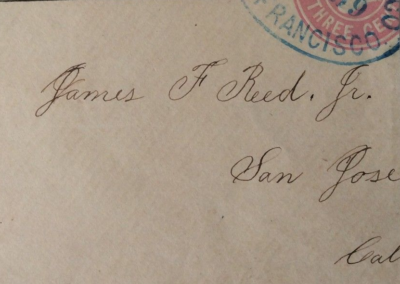 49
THREE CE
FRANCISCO.
CO
James F Reed. Jr.
San Jose
Cal